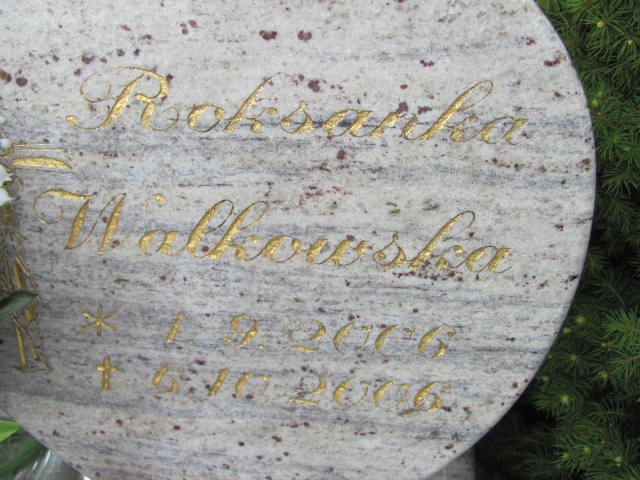 Roksanka
Walkowska
* 1. 9. 2006
✝ 6.10.2006